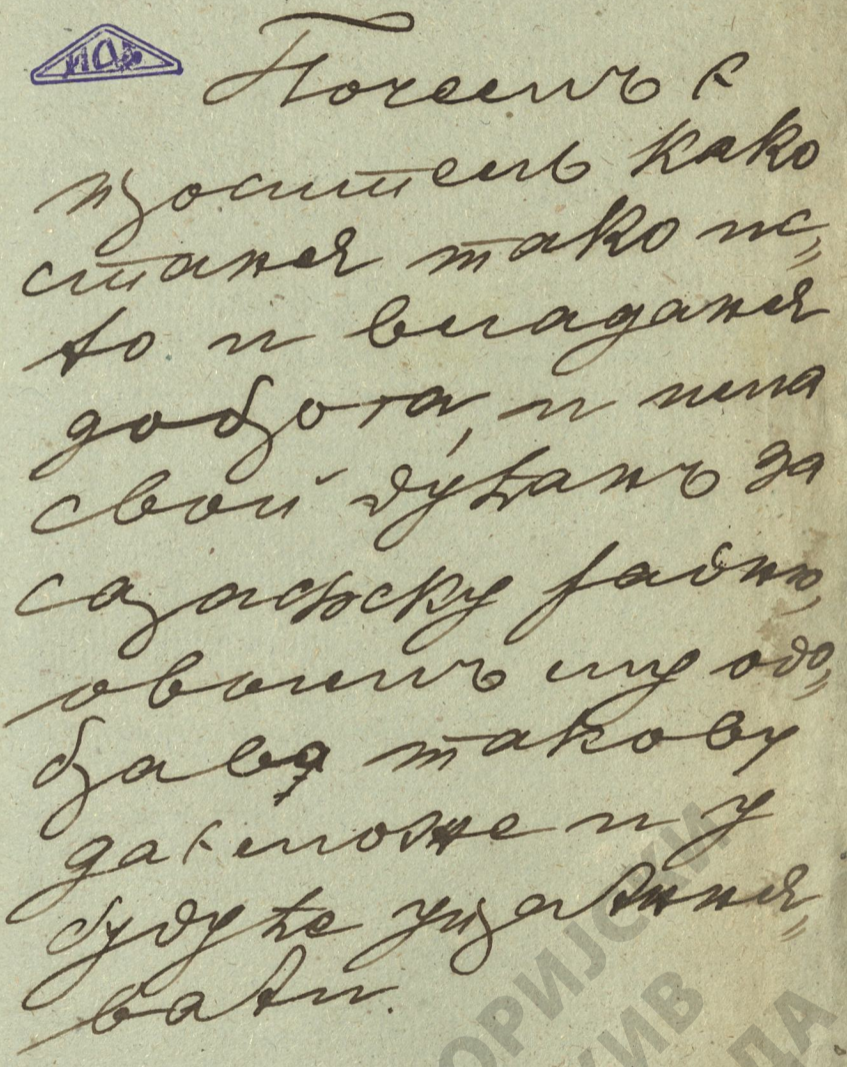 ИАБ
Почемъ є
проситель како
станѧ тако ис=
то и владанѧ
добрта, и има
свой дућанъ за
сарачску радню,
овымъ му одо=
брава такову
да є може и у
будуће упражнѧ=
вати.
ОРИЈСКИ
ХИВ
ДА